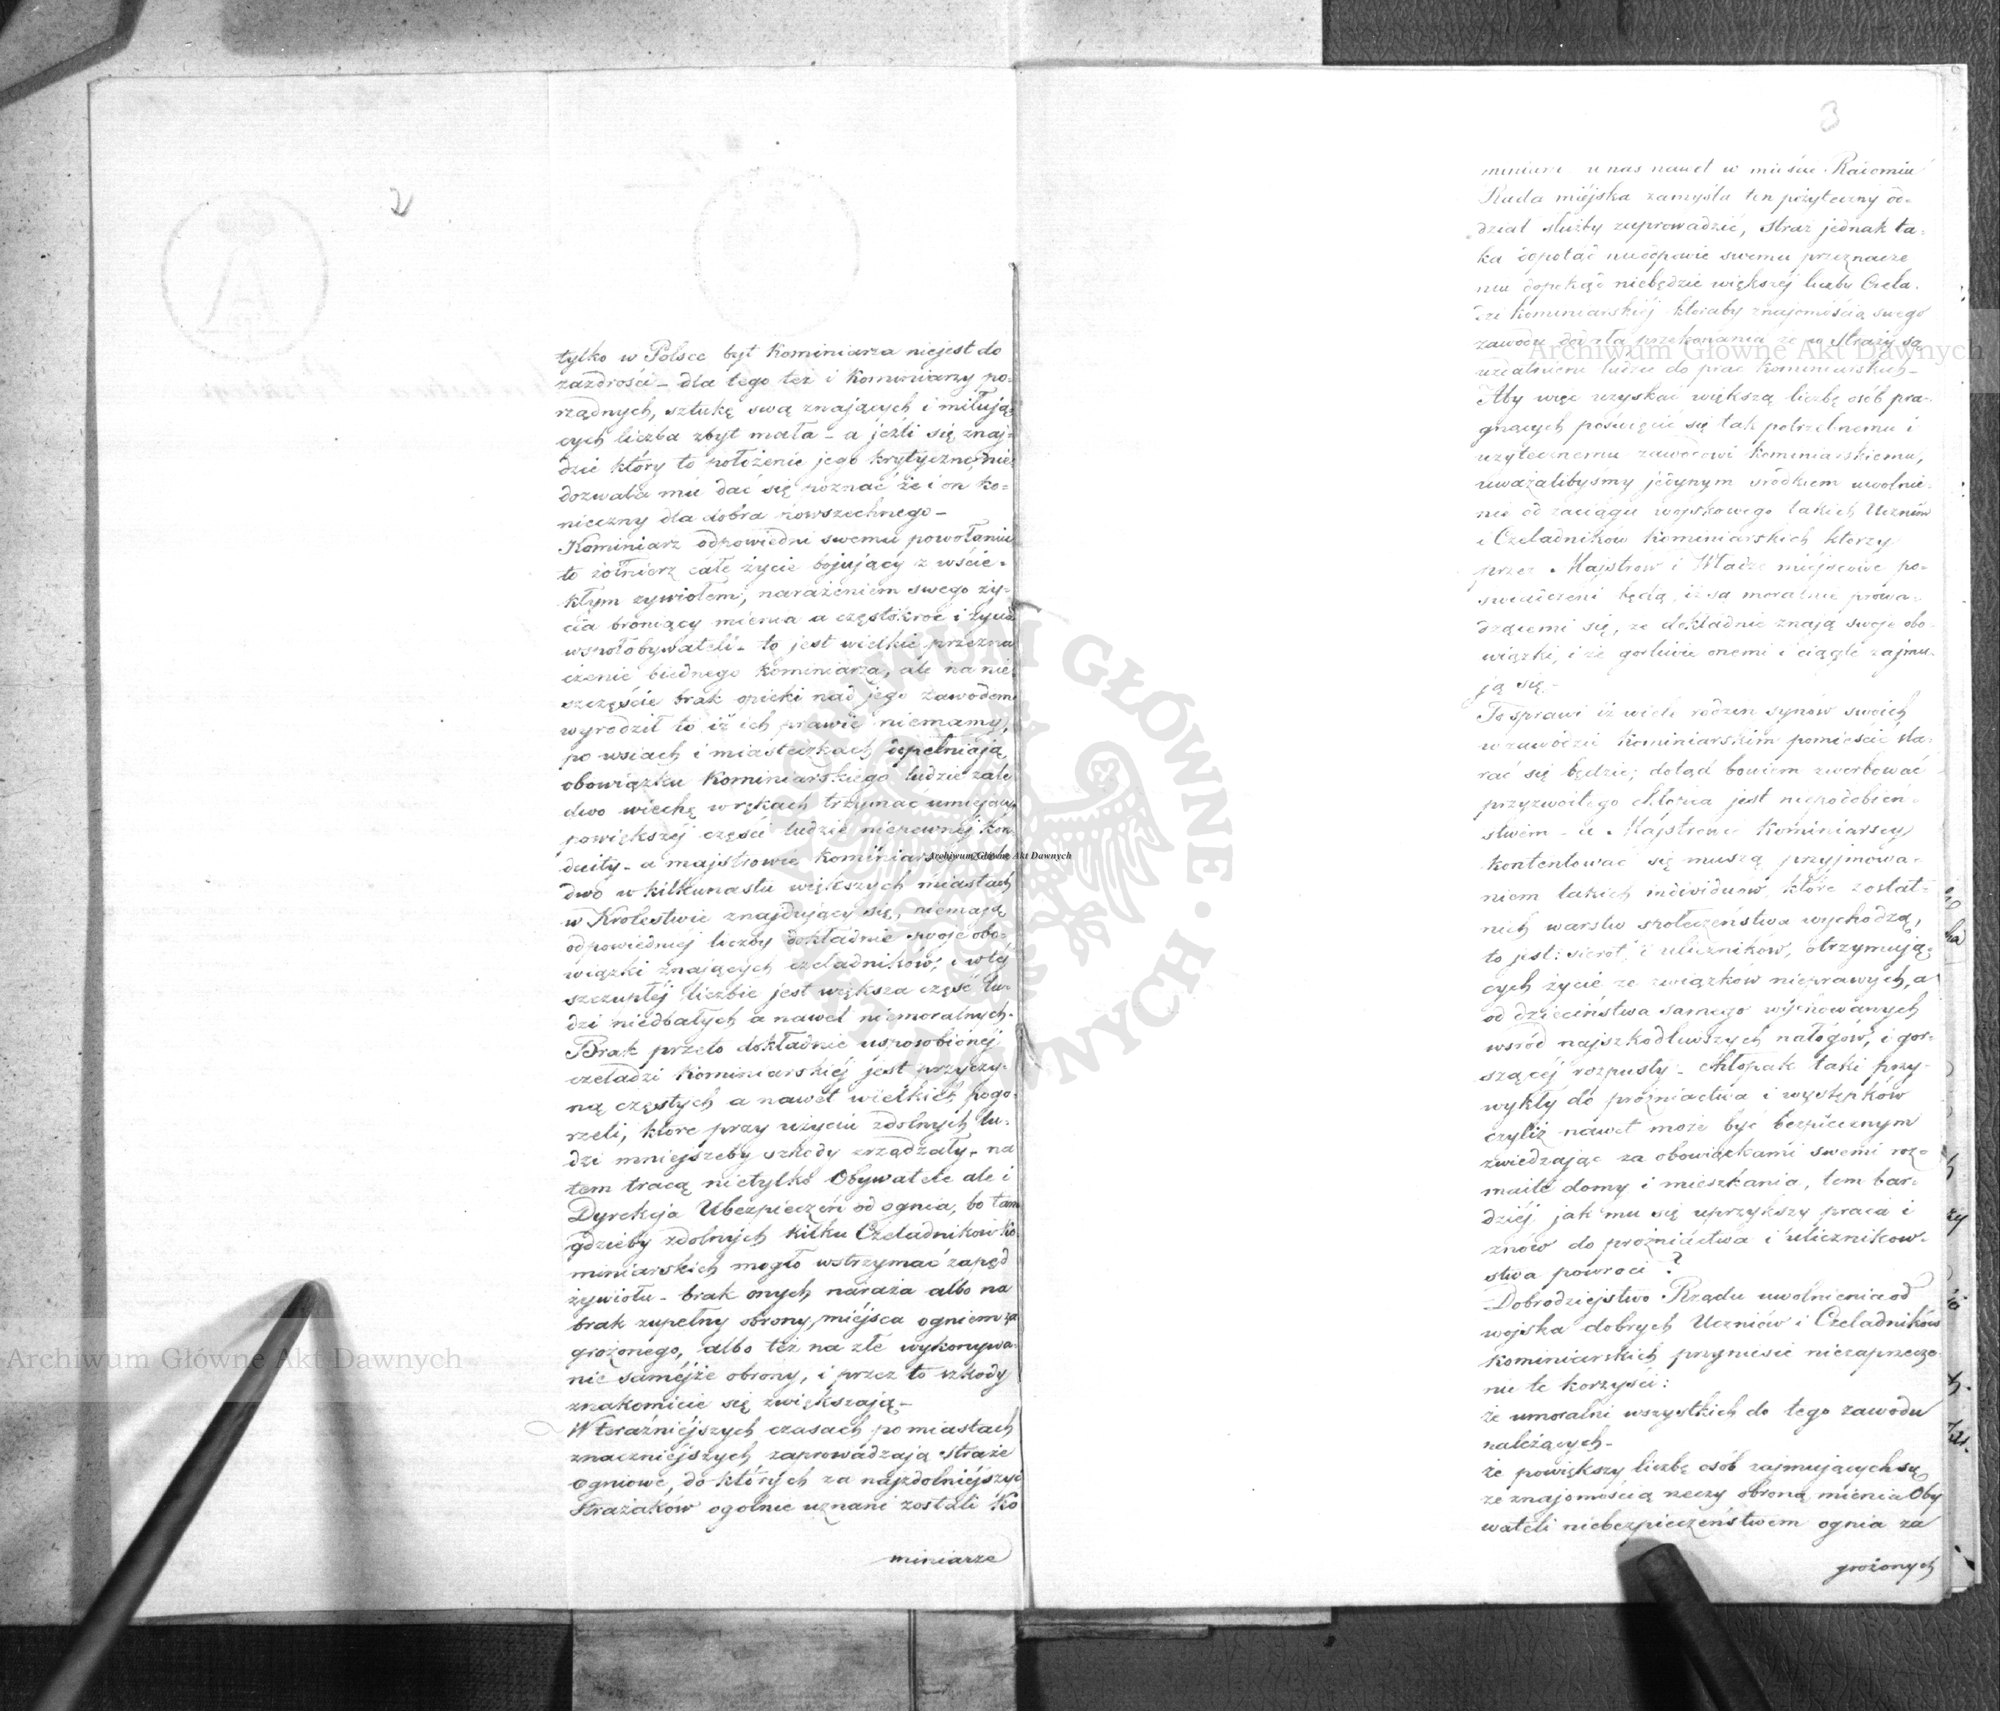 2
tylko w Polsce byt Kominiarza niejest do
zazdrości - dla tego też i Kominiarzy po-
rządnych, sztukę swą znających i miłują-
cych liczba zbyt mała - a jeżli się znaj-
dzie który to położenie jego krytyczne, nie
dozwala mu dać się poznać że i on ko-
nieczny dla dobra powszechnego -
Kominiarz odpowiedni swemu powołaniu
to żołnierz całe życie bojujący z wście-
kłym zywiołem, narażeniem swego ży-
cia broniący mienia a częstokroć i życia
współobywateli - to jest wielkie przezna
czenie biednego Kominiarza, ale na nie-
szczęście brak opieki nad jego zawodem
wyrodził to iż ich prawie niemamy,
po wsiach i miasteczkach dopełniają
obowiązku Kominiarskiego ludzie zale
dwo wiechę w rękach trzymać umiejący,
powiększéj części ludzie niepewnéj kon
duity - a majstrowie Kominiarscy zale
dwo w kilkunastu większych miastach
w Krolestwie znajdujący się, niemają
odpowiedniéj liczby dokładnie swoje obo-
wiązki znających czeladników, i w téj
szczupłéj liczbie jest większa część lu-
dzi niedbałych a nawet niemoralnych -
Brak przeto dokładnie usposobionéj
czeladzi Kominiarskiéj jest przyczy-
ną częstych a nawet wielkich pogo-
rzeli, które przy użyciu zdolnych lu-
dzi mniejszeby szkody zrządzały - na
tem tracą nietylko Obywatele ale i
Dyrekcja Ubezpieczeń od ognia, bo tam
gdzieby zdolnych kilku Czeladnikow Ko
miniarskich mogło wstrzymać zapęd
żywiołu - brak onych naraża albo na
brak zupełny obrony, miéjsca ogniem za
grożonego, albo też na złe wykonywa-
nie saméjże obrony, i przez to szkody
znakomicie się zwiększają -
W teraźniéjszych czasach po miastach
znaczniéjszych zaprowádzają straże
ogniowe, do których za najzdolniéjszych
Strażaków ogólnie uznani zostali Ko
miniarze
3
miniarze u nas nawet w mieście Radomiu
Rada miéjska zamyśla ten pożyteczny od-
dział służby zaprowadzić, straż jednak ta-
ka dopotąd nieodpowie swemu przeznacze
niu dopokąd niebędzie większéj liczby Czela-
dzi Kominiarskiéj któraby znajomością swego
zawodu
uzdolnieni ludzie do prac Kominiarskich -
Aby więc uzyskać większą liczbę osób pra-
gnących poświęcić się tak potrzebnemu i
użytecznemu zawodowi Kominiarskiemu,
uważalibyśmy jedynym środkiem uwolnie-
nie od zaciągu wojskowego takich Uczniów
i Czeladnikow Kominiarskich ktorzy
przez Majstrow i Władze miéjscowe po-
świadczeni będą, iż są moralnie prowa-
dzącemi się, ze dokładnie znają swoje obo-
wiązki, i że gorliwie onemi i ciągle zajmu-
ją się -
To sprawi iż wiele rodzin synów swoich
w zawodzie Kominiarskim pomieścić sta-
rać się będzie; dotąd bowiem zwerbować
przyzwoitego chłopca jest niepodobień-
stwem - a Majstrowie Kominiarscy
kontentować się muszą przyjmowa-
niem takich individuów które z ostat-
nich warstw społeczeństwa wychodzą,
to jest: sierot, i uliczników, otrzymują-
cych życie ze związków nieprawych, a
od dzieciństwa samego wychowanych
wsród najszkodliwszych nałogów, i gor-
szącéj rozpusty - chłopak taki przy-
wykły do prożniactwa i występków
czyliż nawet może być bezpiecznym
zwiedzając za obowiązkami swemi roz-
maite domy i mieszkania, tem bar-
dziéj jak mu się uprzykszy praca i
znów do prożniactwa i ulicznikow-
stwa powroci?
Dobrodziejstwo Rządu uwolnienia od
wojska dobrych Uczniów i Czeladników
Kominiarskich przyniesie niezaprzecze-
nie te korzyści:
że umoralni wszystkich do tego zawodu
należących -
że powiększy liczbę osób zajmujących się
ze znajomością rzeczy obroną mienia Oby
wateli niebezpieczeństwem ognia za
grożonych
Archiwum Główne Akt Dawnych
Archiwum Główne Akt Dawnych
Archiwum Główne Akt Dawnych
ARCHIWUM GŁÓWNE AKT DAWNYCH